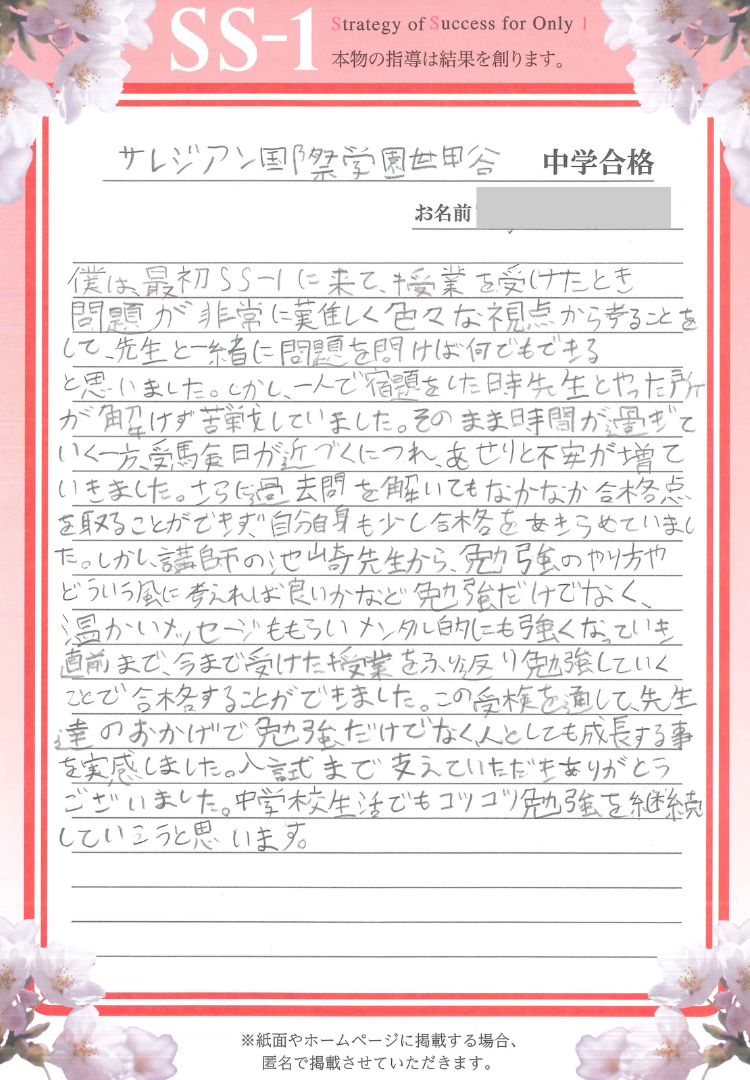 SS-1
Strategy of Success for Only 1
本物の指導は結果を創ります。
サレジアン国際学園世田谷 中学合格
お名前
僕は、最初SS-1に来て、授業を受けたとき
問題が非常に難しく色々な視点から考ることを
して、先生と一緒に問題を問けば何でもできる
と思いました。しかし、一人で宿題をした時先生とやった所
が解けず苦戦していました。そのまま時間が過ぎて
いく一方、受験日が近づくにつれ、あせりと不安が増て
いきました。さらに過去問を解いてもなかなか合格点
を取ることができず、自分自身も少し合格をあきらめていまし
た。しかし、講師の池崎先生から、勉強のやり方や
どういう風に考えれば良いかなど勉強だけでなく、
温かいメッセージももらいメンタル的にも強くなっていき
直前まで、今まで受けた授業をふり返り勉強していく
ことで合格することができました。この受検を通して、先生
達のおかげで勉強だけでなく、人としても成長する事
を実感しました。入試まで支えていただきありがとう
ございました。中学校生活でもコツコツ勉強を継続
していこうと思います。
※紙面やホームページに掲載する場合、
匿名で掲載させていただきます。